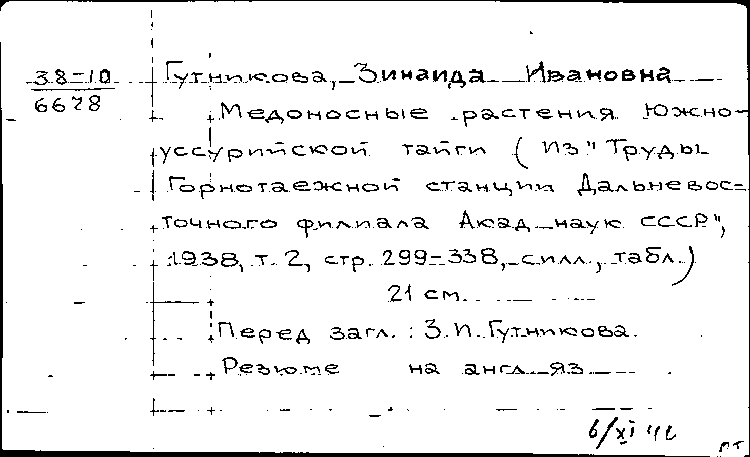 38-10
6678
Гутникова, Зинаида Ивановна
Медоносные растения Южно-
уссурийской тайги (Из "Труды
Горнотаежной станции Дальневос-
точного филиала Акад. наук СССР",
1938, т. 2, стр. 299-338, с илл., табл.)
21 см.
Перед загл.: З.И. Гутникова.
Резюме на англ. яз.
6/XI